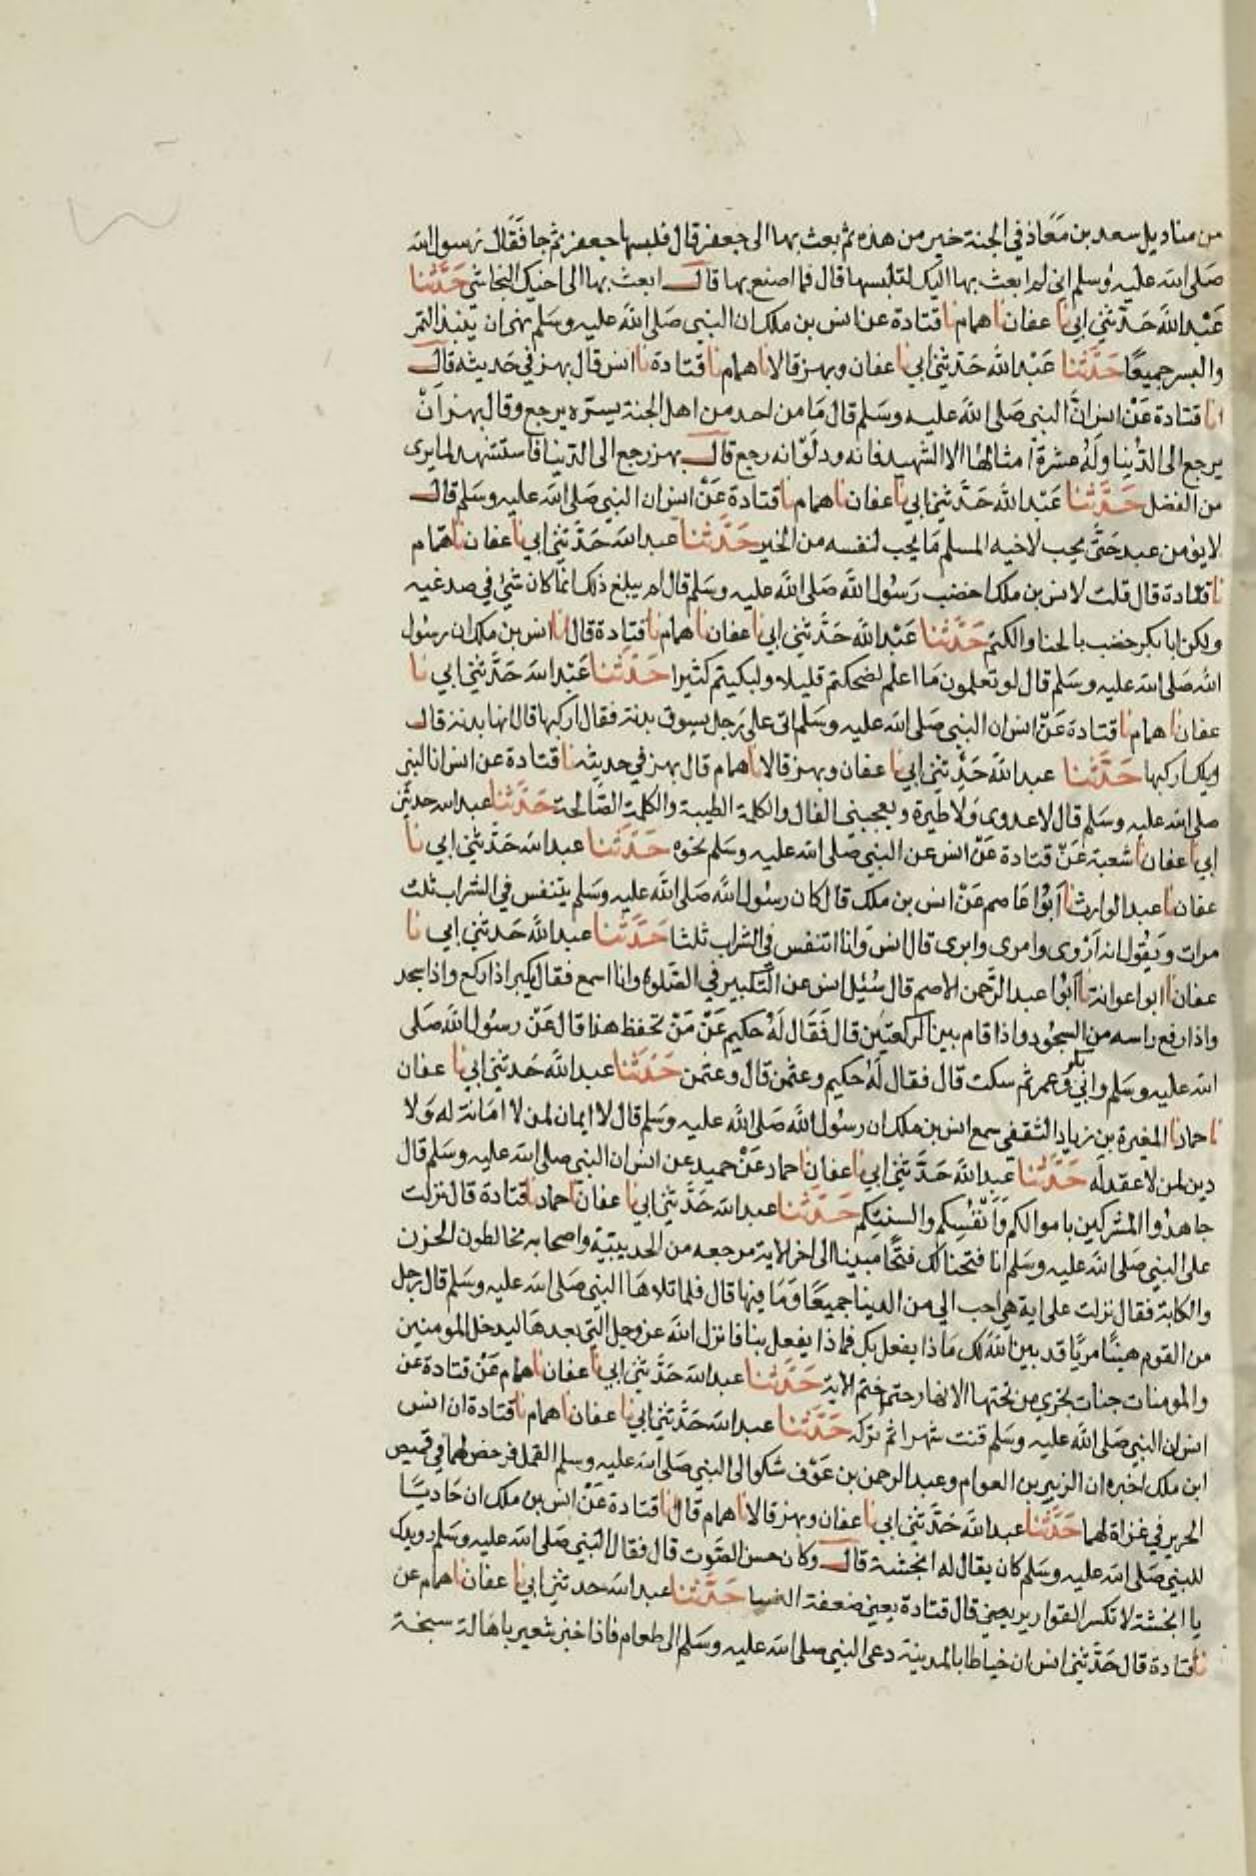 من مناديل سعد بن مَعَاذ في الجنة خير من هذه ثم بعث بها الى جعفر قال فلبسها جعفر ثم جا فَقَال رسول الله
صَلى الله عليه وسلم انى لم ابعث بها اليك لتلبسها قال فما اصنع بها قال ابعث بها الى اخيك النجاشي حَدَّثنا
عَبْد الله حَدّثني ابي نا عفان نا همام نا قتادة عن انس بن ملك ان النبي صَلى الله عليه وسَلم نهى ان ينبذ التمر
والبسر جميعًا حَدَّثنا عَبْد الله حَدّثني ابي نا عفان وبهز قالا نا همام نا قتادة نا انس قال بهز في حَديثه قال
انا قتادة عَنْ انس انّ النبي صَلى الله عليه وسَلم قال مَا من احد من اهل الجنة يسرّه يرجع وقال بهز انْ
يرجع الى الدُّنيا ولَهُ عشرة امثالها الا الشهيد فانه ود لَوْ انه رجع قال بهز رجع الى الدنيا فاستشهد لما يرى
من الفضل حَدَّثنا عَبْد الله حَدَّثني ابي نا عفان نا همام نا قتادة عَنْ انس ان النبي صَلى الله عليه وسَلم قال
لا يؤمن عبد حَتَّى يحب لاخيه المسلم مَا يحب لنفسه من الخير حَدَّثنا عبد الله حَدَّثني ابي نا عفان نا همّام
نا قتادة قال قلت لانس بن ملك اخضب رَسُول الله صَلى الله عليه وسَلم قال لم يبلغ ذلك انما كان شئ في صدغيه
ولكن ابا بكر خضب بالحنا والكتم حَدَّثنا عَبْد الله حَدَّثني ابي نا عفان نا همام نا قتادة قال نا انس بن ملك ان رسول
الله صَلى الله عليه وسَلم قال لو تعلمون مَا اعلم لضحكتم قليلا ولبكيتم كثيرا حَدَّثنا عَبْد الله حَدَّثني ابي نا
عفان نا همام نا قتادة عَنْ انس ان النبي صَلى الله عليه وسَلم اتى على رَجل يسوق بدنة فقال اركبها قال انها بدنة قال
ويلك اركبها حَدَّثنا عبد الله حَدّثني ابي نا عفان وبهز قالا نا همام قال بهز في حديثه نا قتادة عن انس ان النبي
صلى الله عليه وسَلم قال لا عدوى وَلا طيرة ويعجبني الفال والكلمة الطيبة والكلمة الصّالحة حَدَّثنا عبد الله حدثني
ابي نا عفان نا شعبة عَنْ قتادة عَنْ انس عن النبي صَلى الله عليه وسَلم نحوه حَدَّثنا عبد الله حَدَّثني ابي نا
عفان نا عبد الوارث نا اَبُوْا عَاصم عَنْ انس بن ملك قال كان رسُول الله صَلى الله عليه وسَلم يتنفس في الشراب ثلث
مرات وَيَقُول انه اَرْوى وامرى وابرى قال انس وَانا اتنفس في الشراب ثلثا حَدَّثنا عبد الله حَدثني ابي نا
عفان نا ابوا عوانة نا اَبُوْا عبد الرّحمن الاصم قال سُئِل انس عن التكبير في الصّلوة وانا اسمع فقال يكبر اذا ركع واذا سجد
واذا رفع راسه من السجود واذا قام بين الركعتين قال فَقَال لَهُ حكيم عَنْ مَنْ تحفظ هذا قال عَنْ رسول الله صَلى
الله عليه وسَلم وابي بكر وعمر ثم سكت قال فقال لَهُ حكيم وعثمن قال وعثمن حَدَّثنا عبد الله حَدثني ابي نا عفان
نا حماد نا المغيرة بن زياد الثقفي سمع انس بن ملك ان رسُول الله صَلى الله عليه وسَلم قال لا ايمان لمن لا امَانة له وَلا
دين لمن لا عقد له حَدَّثنا عبد الله حَدَّثني ابي نا عفان نا حماد عَنْ حميد عن انس ان النبي صلى الله عليه وسَلم قال
جاهدُوا المشركين باموالكم وَاَنْفُسِكم والسنتكم حَدَّثنا عبد الله حَدَّثني ابي نا عفان نا حماد نا قتادة قال نزلت
على النبي صَلى الله عليه وسَلم انا فتحنا لك فتحًا مبينا الى اخر الاية مرجعه من الحديبية واصحابه مخالطون الحزن
والكابة فقال نزلت على اية هي احب الي من الدنيا جميعًا وَمَا فيها قال فلما تلاهَا النبي صَلى الله عليه وسَلم قال رجل
من القوم هنيًا مريًا قد بين الله لك مَا ذا يفعل بك فما ذا يفعل بنا فانزل الله عز وجل التي بعدهَا ليدخل المومنين
والمومنات جنات تجري من تحتها الانهار حتى ختم الاية حَدَّثنا عبد الله حَدَّثني ابي نا عفان نا همام عَنْ قتادة عن
انس ان النبي صَلى الله عليه وسَلم قنت شهرا ثم تركه حَدَّثنا عبد الله حَدَّثني ابي نا عفان نا همام نا قتادة ان انس
ابن ملك اخبره ان الزبير بن العوام وعبد الرحمن بن عَوْف شكوا الى النبي صَلى الله عليه وسلم القمل فرخص لهما في قميص
الحرير في غزاة لهما حَدَّثنا عبد الله حَدَّثني ابي نا عفان وبهز قالا نا همام قال نا قتادة عَنْ انس بن ملك ان حَاديًا
للنبي صَلى الله عليه وسَلم كان يقال له انجشة قال وكان حسن الصّوت قال فقال النبي صَلى الله عليه وسَلم رويدك
يا انجشة لا تكسر القوارير يعني قال قتادة يعني ضعفة النسا حَدَّثنا عبد الله حدثني ابي نا عفان نا همام عن
نا قتادة قال حَدَّثني انس ان خياطا بالمدينة دعى النبي صلى الله عليه وسَلم الى طعام فاذا خبز شعير باهالة سبخة